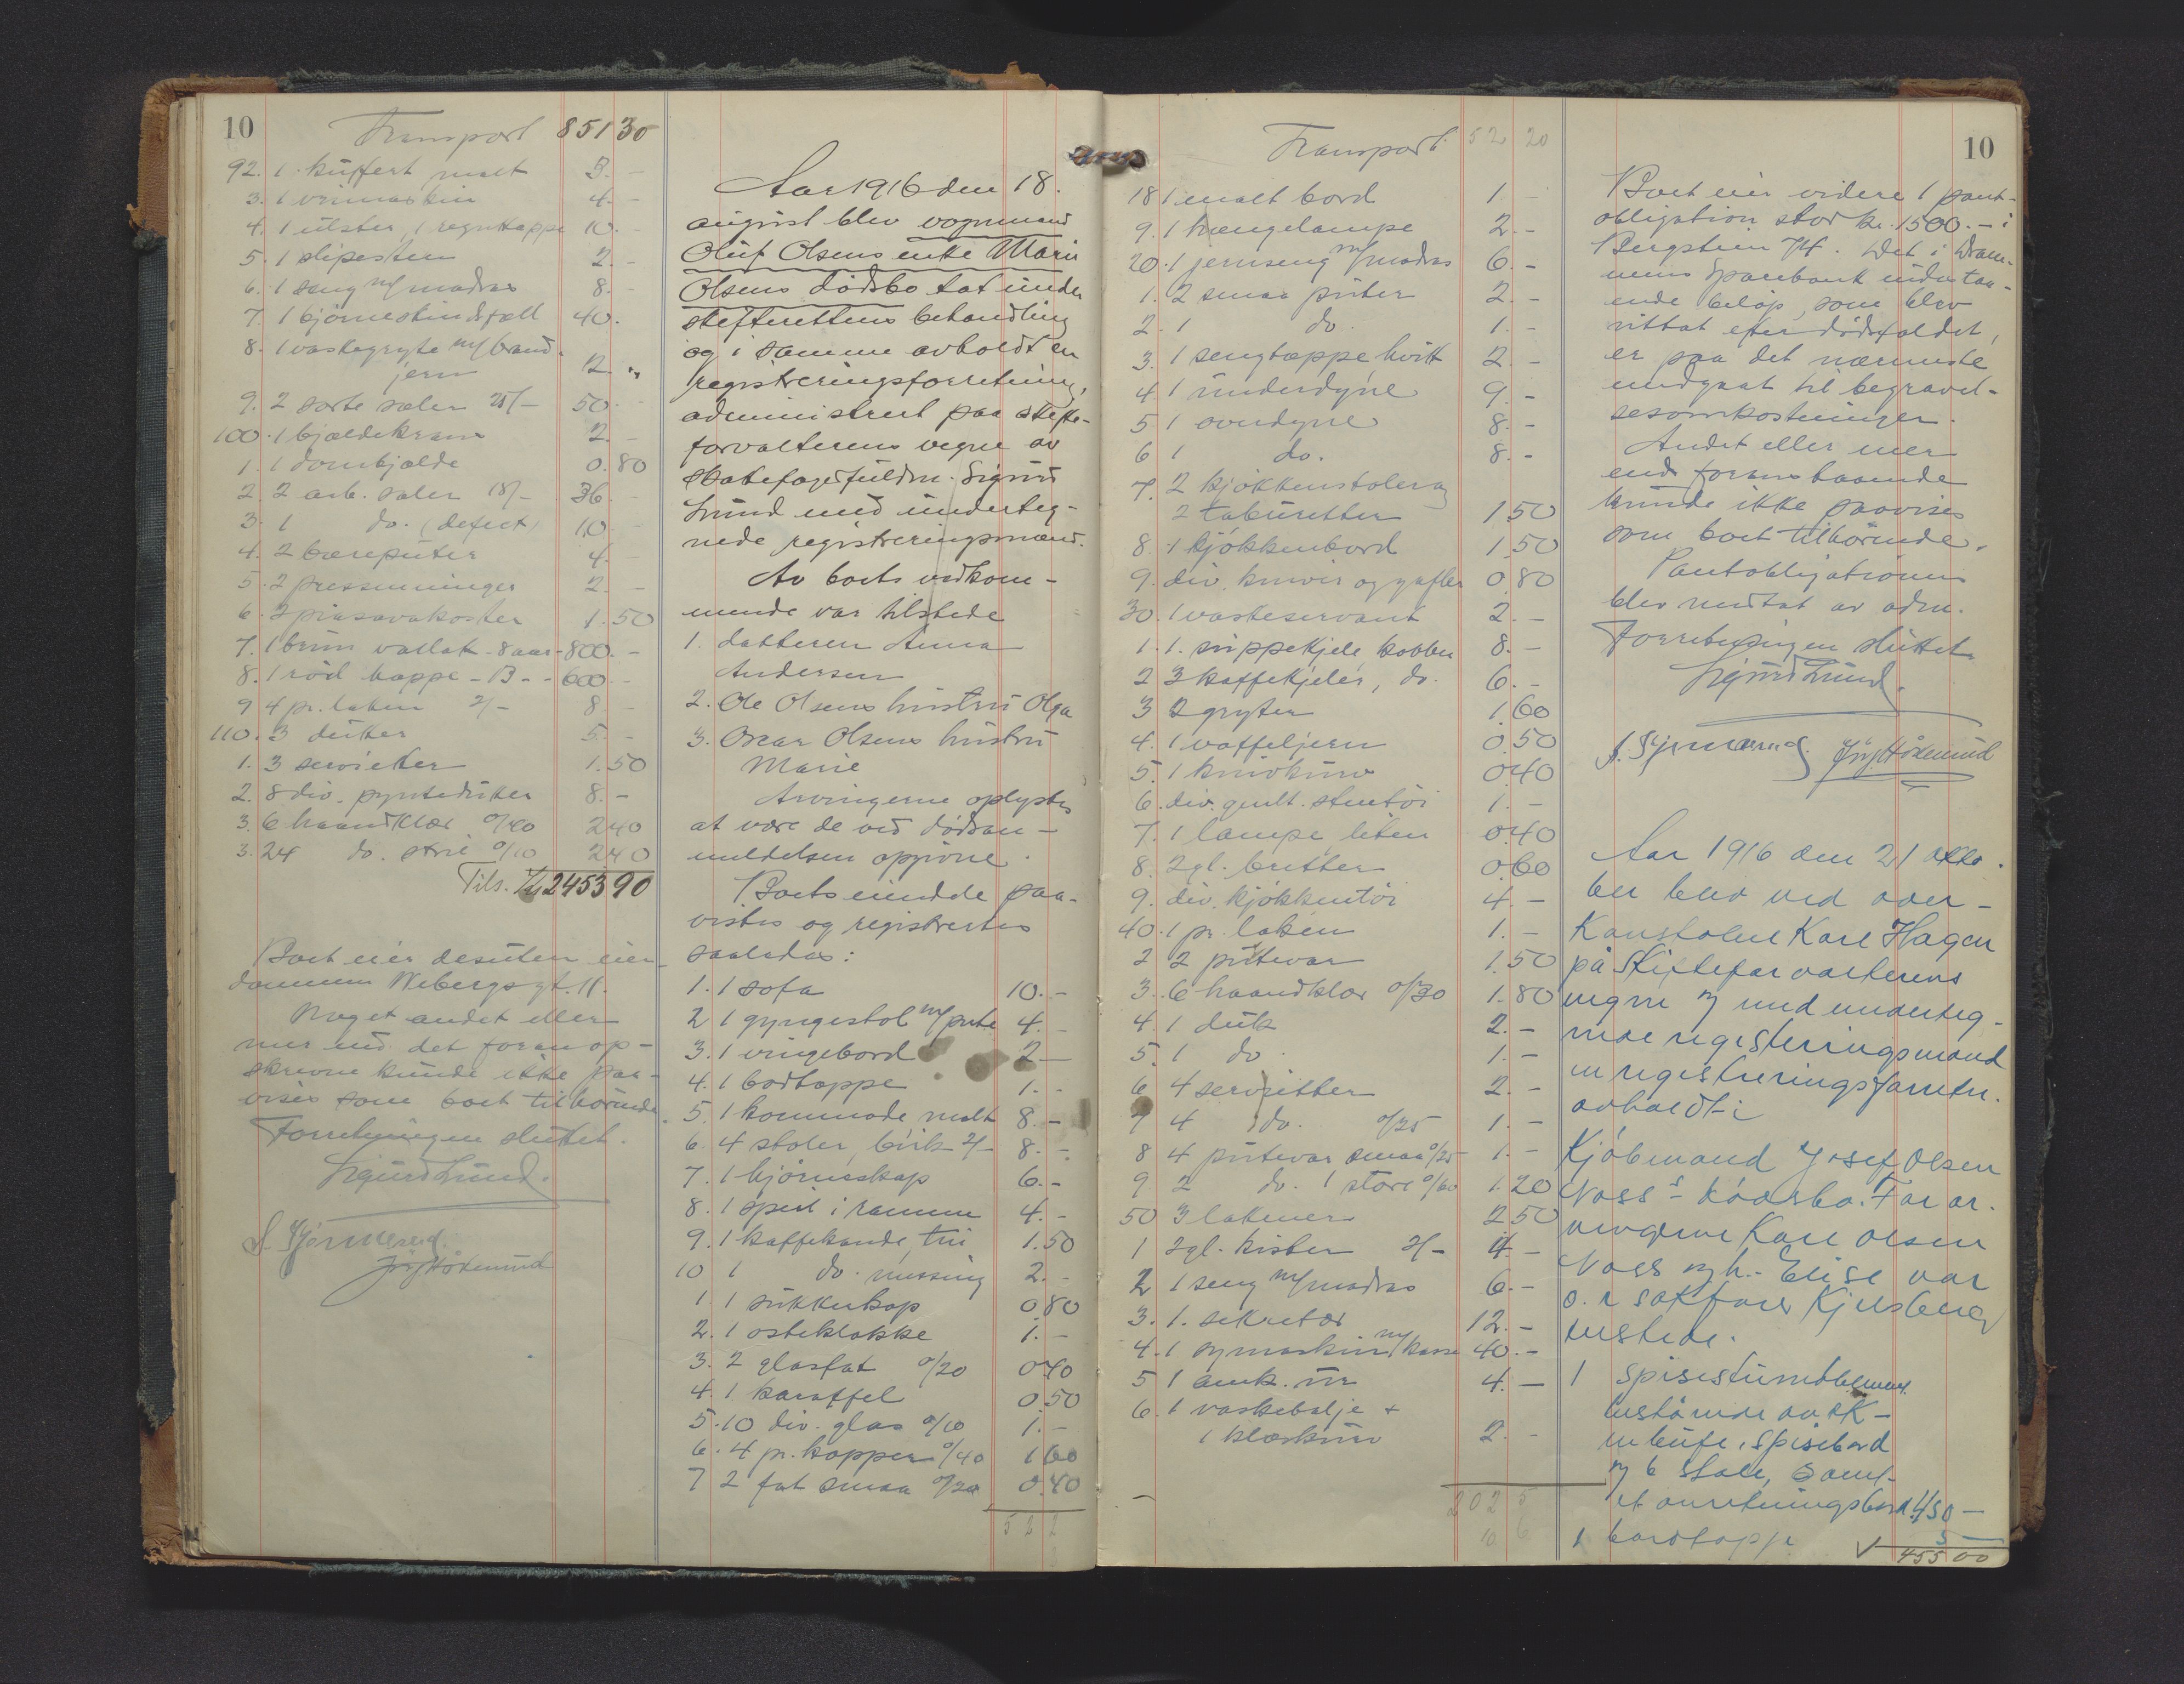 10
Transport 851 30
92. 1 kuffert malt 3. -
3. 1 vrimaskin 4. -
4. 1 ulster, 1 regnkappe 10. -
5. 1 slipesten 2. -
6. 1 seng m/madras 8. -
7. 1 bjørneskindsfæll 40.
8. 1 vaskegryte m/brand-
jern 12 "
9. 2 sorte sæler 25/- 50. -
100. 1 bjældekrans 2. -
1. 1 dombjælde 0.80
2. 2 arb. sæler 18/- 36. -
3. 1 do. (defect) 10. -
4. 2 bæreputer 4. -
5. 2 pressenninger 2. -
6. 2 piasavakoster 1.50
7. 1 brun vallak - 8 aar - 800. -
8. 1 rød hoppe - 13 - - 600 -
9 4 pr. laken 2/- 8. -
110. 3 duker 5. -
1. 3 servietter 1.50
2. 8 div. pyntedukker 8. -
3. 6 haandklær 0/40 2.40
3. 24 do. strie 0/10 2.40
Tils. 2453 90
Boet eier desuten eien-
dommen Wibergsgt. 11.
Noget andet eller
mer end det foran op-
skrevne kunde ikke paa-
vises som boet tilhørende.
Forretningen sluttet.
Sigurd Lund.
Aar 1916 den 18.
august blev vognmand
Oluf Olsens enke Marie
Olsens dødsbo tat under
skifterettens behandling
og i samme avholdt en
registreringsforretning,
administrert paa skifte-
forvalterens vegne av
skattefogedfuldm. Sigurd
Lund med underteg-
nede registreringsmænd.
Av boets vedkom-
mende var tilstede
1. datteren Anna
Andersen
2. Ole Olsens hustru Olga
3. Oscar Olsens hustru
Marie
Arvingerne oplystes
at være de ved dødsan-
meldelsen opgivne.
Boets eiendele paa-
vistes og registrertes
saaledes:
1. 1 sofa 10. -
2 1 gyngestol m/pute 4. -
3. 1 vingebord 2 -
4. 1 bordteppe 1. -
5. 1 kommode, malt 8. -
6. 4 stoler, birk 2/- 8. -
7. 1 hjørneskap 6. -
8. 1 speil i ramme 4. -
9. 1 kaffekande, tin 1.50
10 1 do. messing 2. -
1. 1 sukkerkop 0.80
2. 1 osteklokke 1. -
3. 2 glasfat 0/20 0.40
4. 1 karaffel 0.50
5. 10 div. glas 0/10 1. -
6. 4 pr. kopper 0/40 1.60
7 2 fat smaa 0/20 0.40
52 2
10
Transport 52 20
18 1 malt bord 1 -
9. 1 hængelampe 2. -
20. 1 jernseng m/madras 6. -
1. 2 smaa puter 2. -
2. 1 do. 1. -
3. 1 sengteppe, hvitt 2. -
4. 1 underdyne 9. -
5 1 overdyne 8. -
6 1 do. 8. -
7. 2 kjøkkenstoler og
2 taburetter 1 50
8. 1 kjøkkenbord 1.50
9. div. kniver og gafler 0.80
30. 1 vaskeservant 2. -
1. 1. suppekjele, kobber 8. -
2 3 kaffekjeler, do. 6. -
3 2 gryter 1.60
4. 1 vaffeljern 0.50
5. 1 knivkurv 0.40
6. div. gmlt. stentøi 1. -
7. 1 lampe, liten 0.40
8. 2 gl. bretter 0.60
9. div. kjøkkentøi 4. -
40. 1 pr. laken 1. -
2 2 putevar 1.50
3. 6 haandklær 0/30 1.80
4. 1 duk 2. -
5. 1 do. 1. -
6 4 servietter 2. -
7 4 do. 0/25 1. -
8 4 putevar smaa 0/25 1. -
9 2 do. store 0/60 1.20
50 3 lakener 2 50
1 2 gl. kister 2/- 4. -
2 1 seng m/madras 6. -
3. 1. sekretær 12. -
4. 1 symaskin m/kasse 40. -
5 1 amk. ur 4. -
6. 1 vaskebalje +
1 klæskurv 2. -
Boet eier videre 1 pant-
obligation stor kr. 1500. - i
Bergstien 74. Det i Dram-
mens Sparebank indesta-
ende beløp, som blev
uttat efter dødsfaldet,
er paa det nærmeste
medgaat til begravel-
sesomkostninger.
Andet eller mer
end foranstaaende
kunde ikke paavises
som boet tilhørende.
Pantobligationen
blev mottat av adm.
Forretningen sluttet.
Sigurd Lund.
Aar 1916 den 21 okto-
ber blev ved over-
Konstabel Karl Hagen
på Skifteforvalterens
vegne og med underteg-
nede registeringsmænd
en registreringsforretn.
avholdt i
Kjøbmand Josef Olsen
Voss's dødsbo. For ar-
vingerne Karl Olsen
Voss og h. Elise var
o. r sakfører Kjelsberg
tilstede.
1 Spisestuemøblement
bestående av ek-
en bufe, spisebord
og 6 stole, samt
et anretningsbord 450 -
1 bordteppe 5 -
455 00